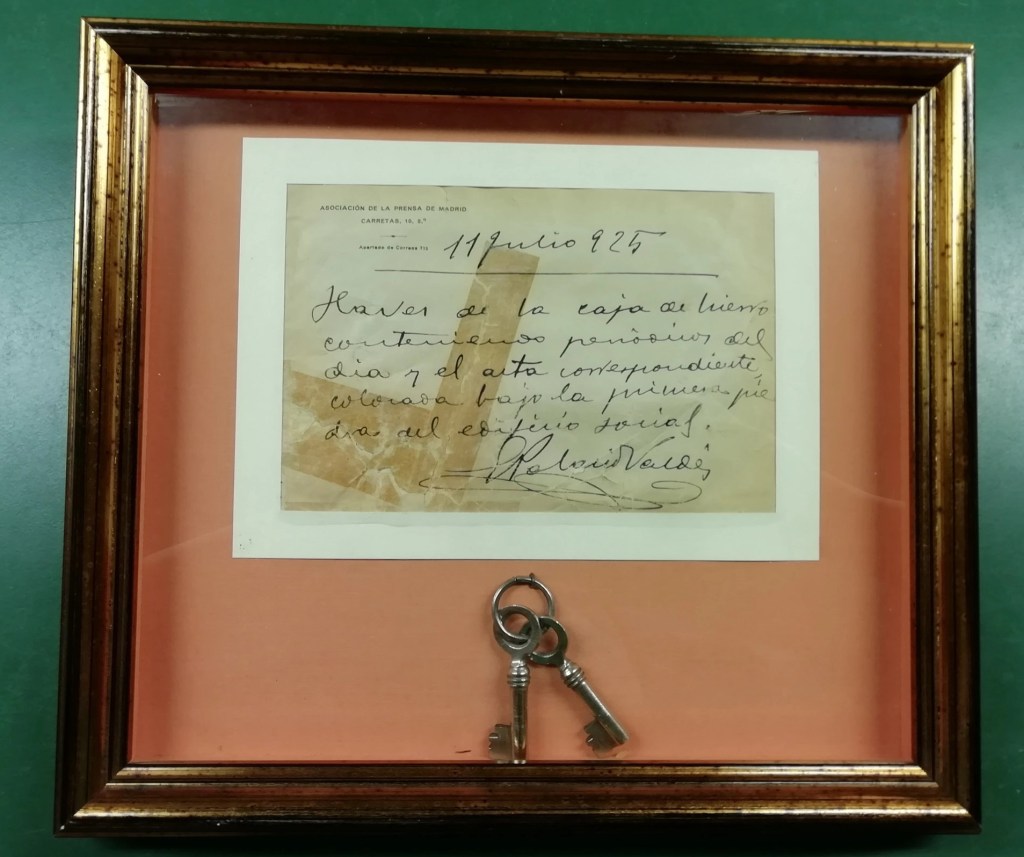 ASOCIACIÓN DE LA PRENSA DE MADRID
CARRETAS, 14, 2.º
Apartado de Correos
11 Julio 925
Llaves de la caja de hierro
conteniendo periódicos del
día y el acta correspondiente,
colocada bajo la primera pie
dra del edificio social.
Palacio Valdés